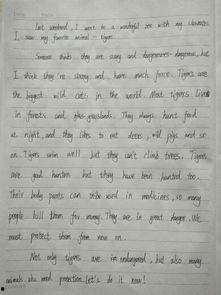 Last weekend, I went to a wonderful zoo with my classmates.
I saw my favorite animal - tigers.
Someone thinks they are scary and dangerous, but
I think they're strong and have much force. Tigers are
the biggest wild cats in the world. Most tigers live
in forests and grasslands. They always hunt food
at night, and they likes to eat deers, wild pigs and so
on. Tigers swim well but they can't climb trees. Tigers
are good hunters but they have been hunted too.
Their body parts can be used in medicines, so many
people kill them for money. They are in great danger. We
must protect them from now on.
Not only tigers are in endangered, but also many
animals who need protection. Let's do it now!